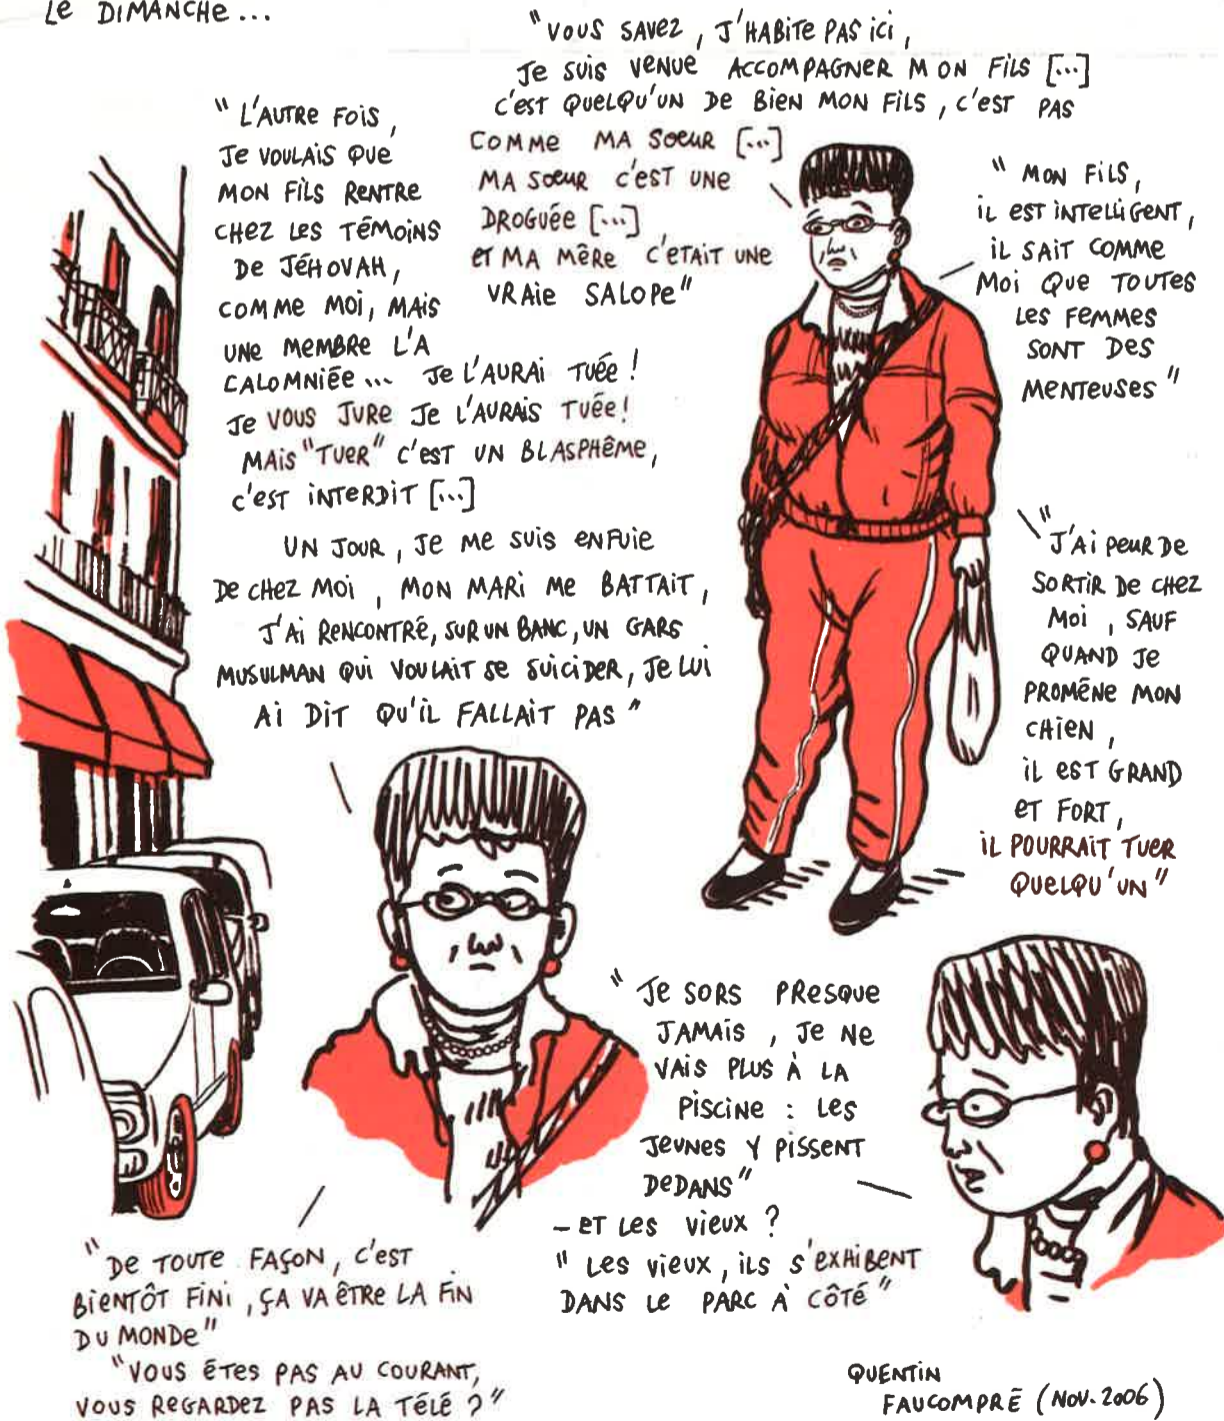 Le DIMANCHE...
"VOUS SAVEZ, J'HABITE PAS ICI,
JE SUIS VENUE ACCOMPAGNER MON FILS [...]
C'EST QUELQU'UN DE BIEN MON FILS, C'EST PAS
COMME MA SOEUR [...]
MA SOEUR C'EST UNE
DROGUÉE [...]
ET MA MÊRE C'ETAIT UNE
VRAIE SALOPE"
"L'AUTRE FOIS,
JE VOULAIS QUE
MON FILS RENTRE
CHEZ LES TÉMOINS
DE JÉHOVAH,
COMME MOI, MAIS
UNE MEMBRE L'A
CALOMNIÉE... JE L'AURAI TUÉE!
JE VOUS JURE JE L'AURAIS TUÉE!
MAIS "TUER" C'EST UN BLASPHÊME,
C'EST INTERDIT [...]
UN JOUR, JE ME SUIS ENFUIE
DE CHEZ MOI, MON MARI ME BATTAIT,
J'AI RENCONTRÉ, SUR UN BANC, UN GARS
MUSULMAN QUI VOULAIT SE SUICIDER, JE LUI
AI DIT QU'IL FALLAIT PAS"
"MON FILS,
IL EST INTELLIGENT,
IL SAIT COMME
MOI QUE TOUTES
LES FEMMES
SONT DES
MENTEUSES"
"J'AI PEUR DE
SORTIR DE CHEZ
MOI, SAUF
QUAND JE
PROMÊNE MON
CHIEN,
IL EST GRAND
ET FORT,
IL POURRAIT TUER
QUELQU'UN"
"JE SORS PRESQUE
JAMAIS, JE NE
VAIS PLUS À LA
PISCINE : LES
JEUNES Y PISSENT
DEDANS"
- ET LES VIEUX ?
"LES VIEUX, ILS S'EXHIBENT
DANS LE PARC À CÔTÉ"
"DE TOUTE FAÇON, C'EST
BIENTÔT FINI, ÇA VA ÊTRE LA FIN
DU MONDE"
"VOUS ÊTES PAS AU COURANT,
VOUS REGARDEZ PAS LA TÉLÉ ?"
QUENTIN
FAUCOMPRÉ (NOV. 2006)